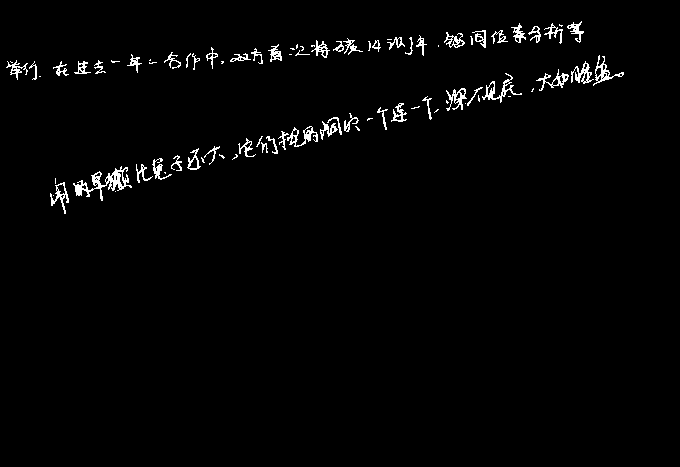 举行.在过去一年的合作中,双方首次将碳14测年、锶同位素分析等
闹的旱獭比兔子还大,它们挖的洞穴一个连一个,深不见底,大如脸盆。